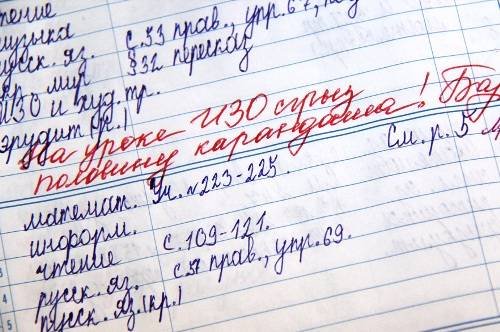 чтение
музыка
русск. яз. с.53 прав., упр.67,
окр. мир §32 пересказ
ИЗО и худ. тр.
эрудит (кр.)
На уроке ИЗО сгрыз
половину карандаша!
математ. Уч. №223-225. См. р. 5
информ.
чтение с.109-121.
русск. яз. с.37 прав., упр.69.
русск. яз. (кр.)
3
4
5